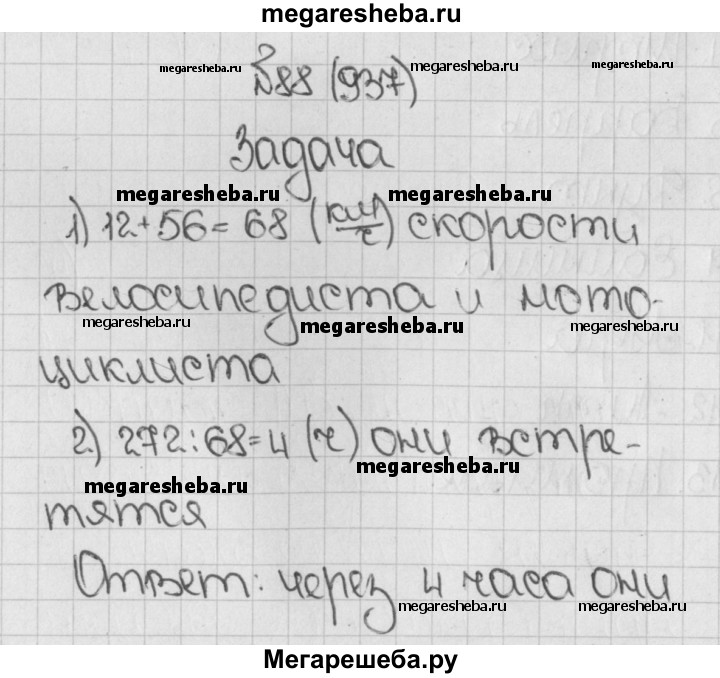 megaresheba.ru
№88 (937)
megaresheba.ru megaresheba.ru megaresheba.ru
Задача
megaresheba.ru megaresheba.ru
1) 12+56=68 (км/ч) скорости
велосипедиста и мото-
megaresheba.ru megaresheba.ru megaresheba.ru
циклиста
2) 272:68=4 (ч) они встре-
megaresheba.ru
megaresheba.ru
тятся
Ответ: через 4 часа они
megaresheba.ru megaresheba.ru
Мегарешеба.ру